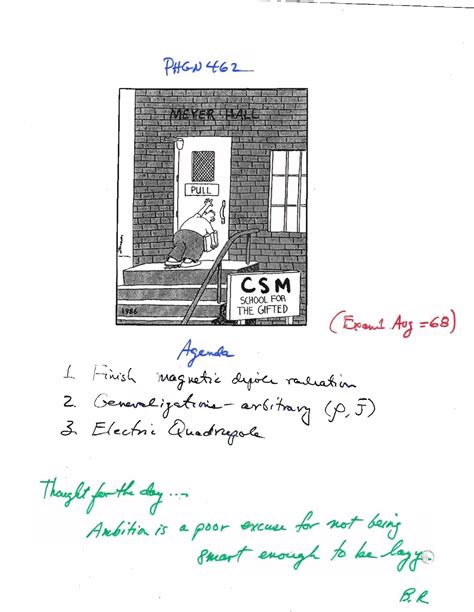 PHGN 462
MEYER HALL
PULL
CSM
SCHOOL FOR
THE GIFTED
1986
(Exam 1 Avg = 68)
Agenda
1. Finish magnetic dipole radiation
2. Generalizations - arbitrary (ρ, J⃗)
3. Electric Quadrupole
Thought for the day ...
Ambition is a poor excuse for not being
smart enough to be lazy.
B.R